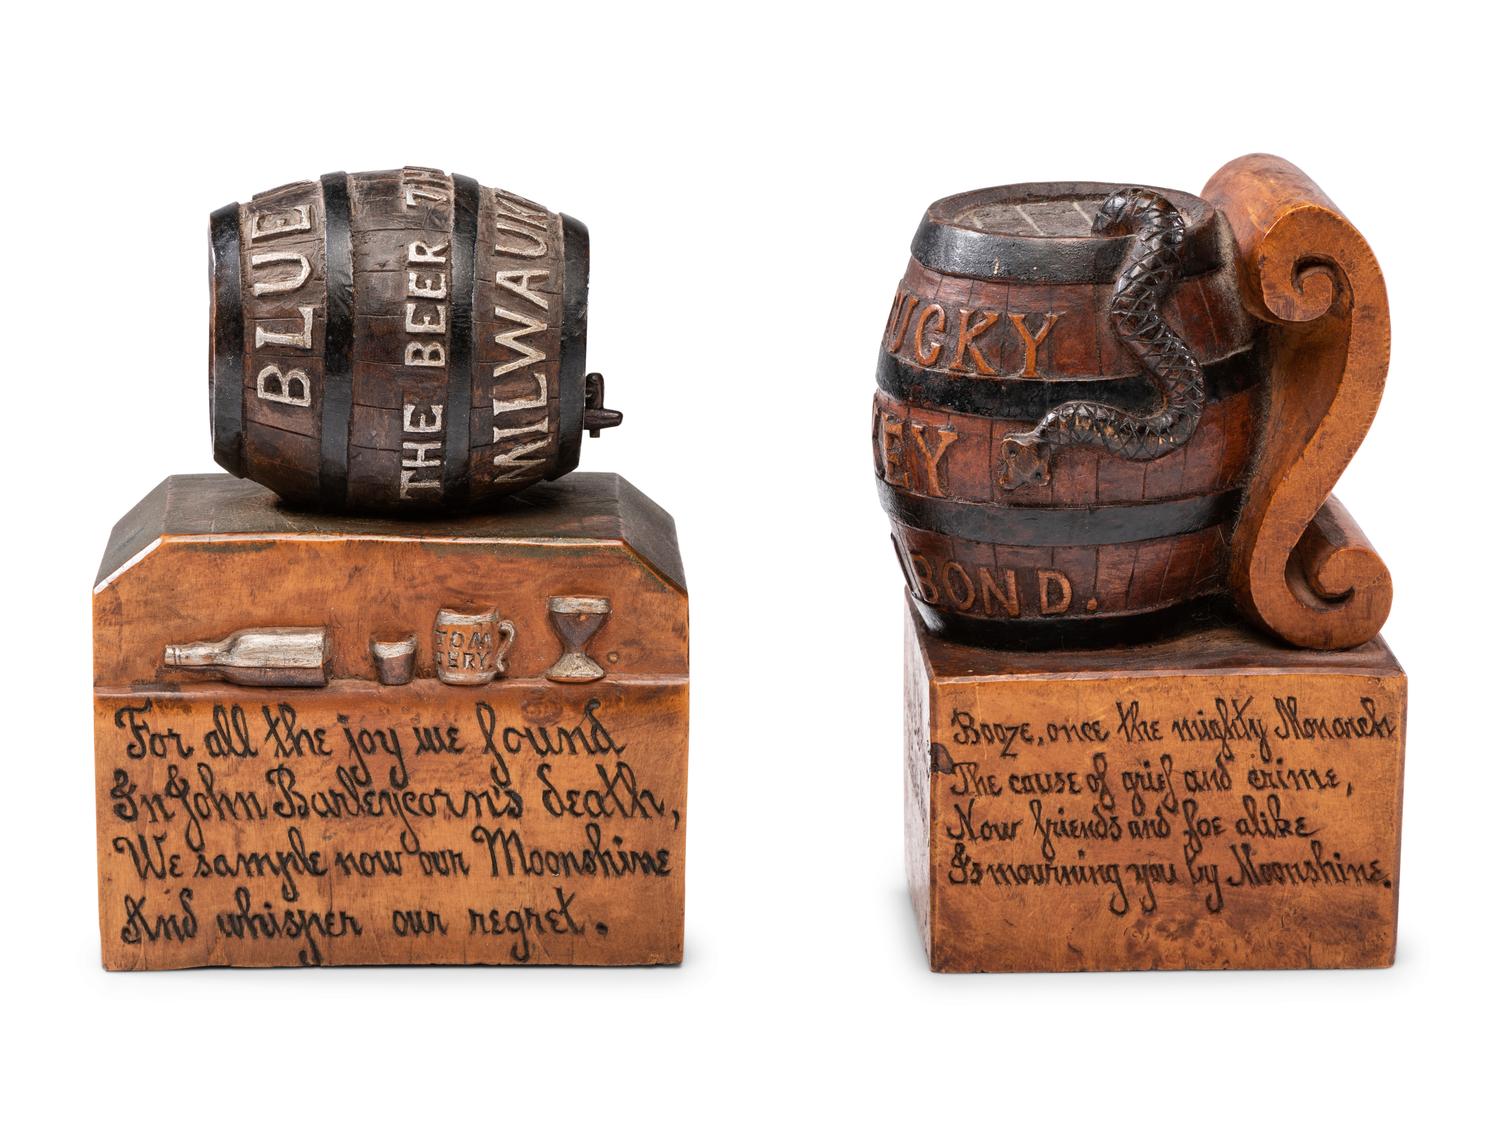 BLUE
THE BEER TH
MILWAUK
TOM
JERY.
For all the joy we found
In John Barleycorn's death,
We sample now our Moonshine
And whisper our regret.
UCKY
EY
BOND.
Booze, once the mighty Monarch
The cause of grief and crime,
Now friends and foe alike
Is mourning you by Moonshine.